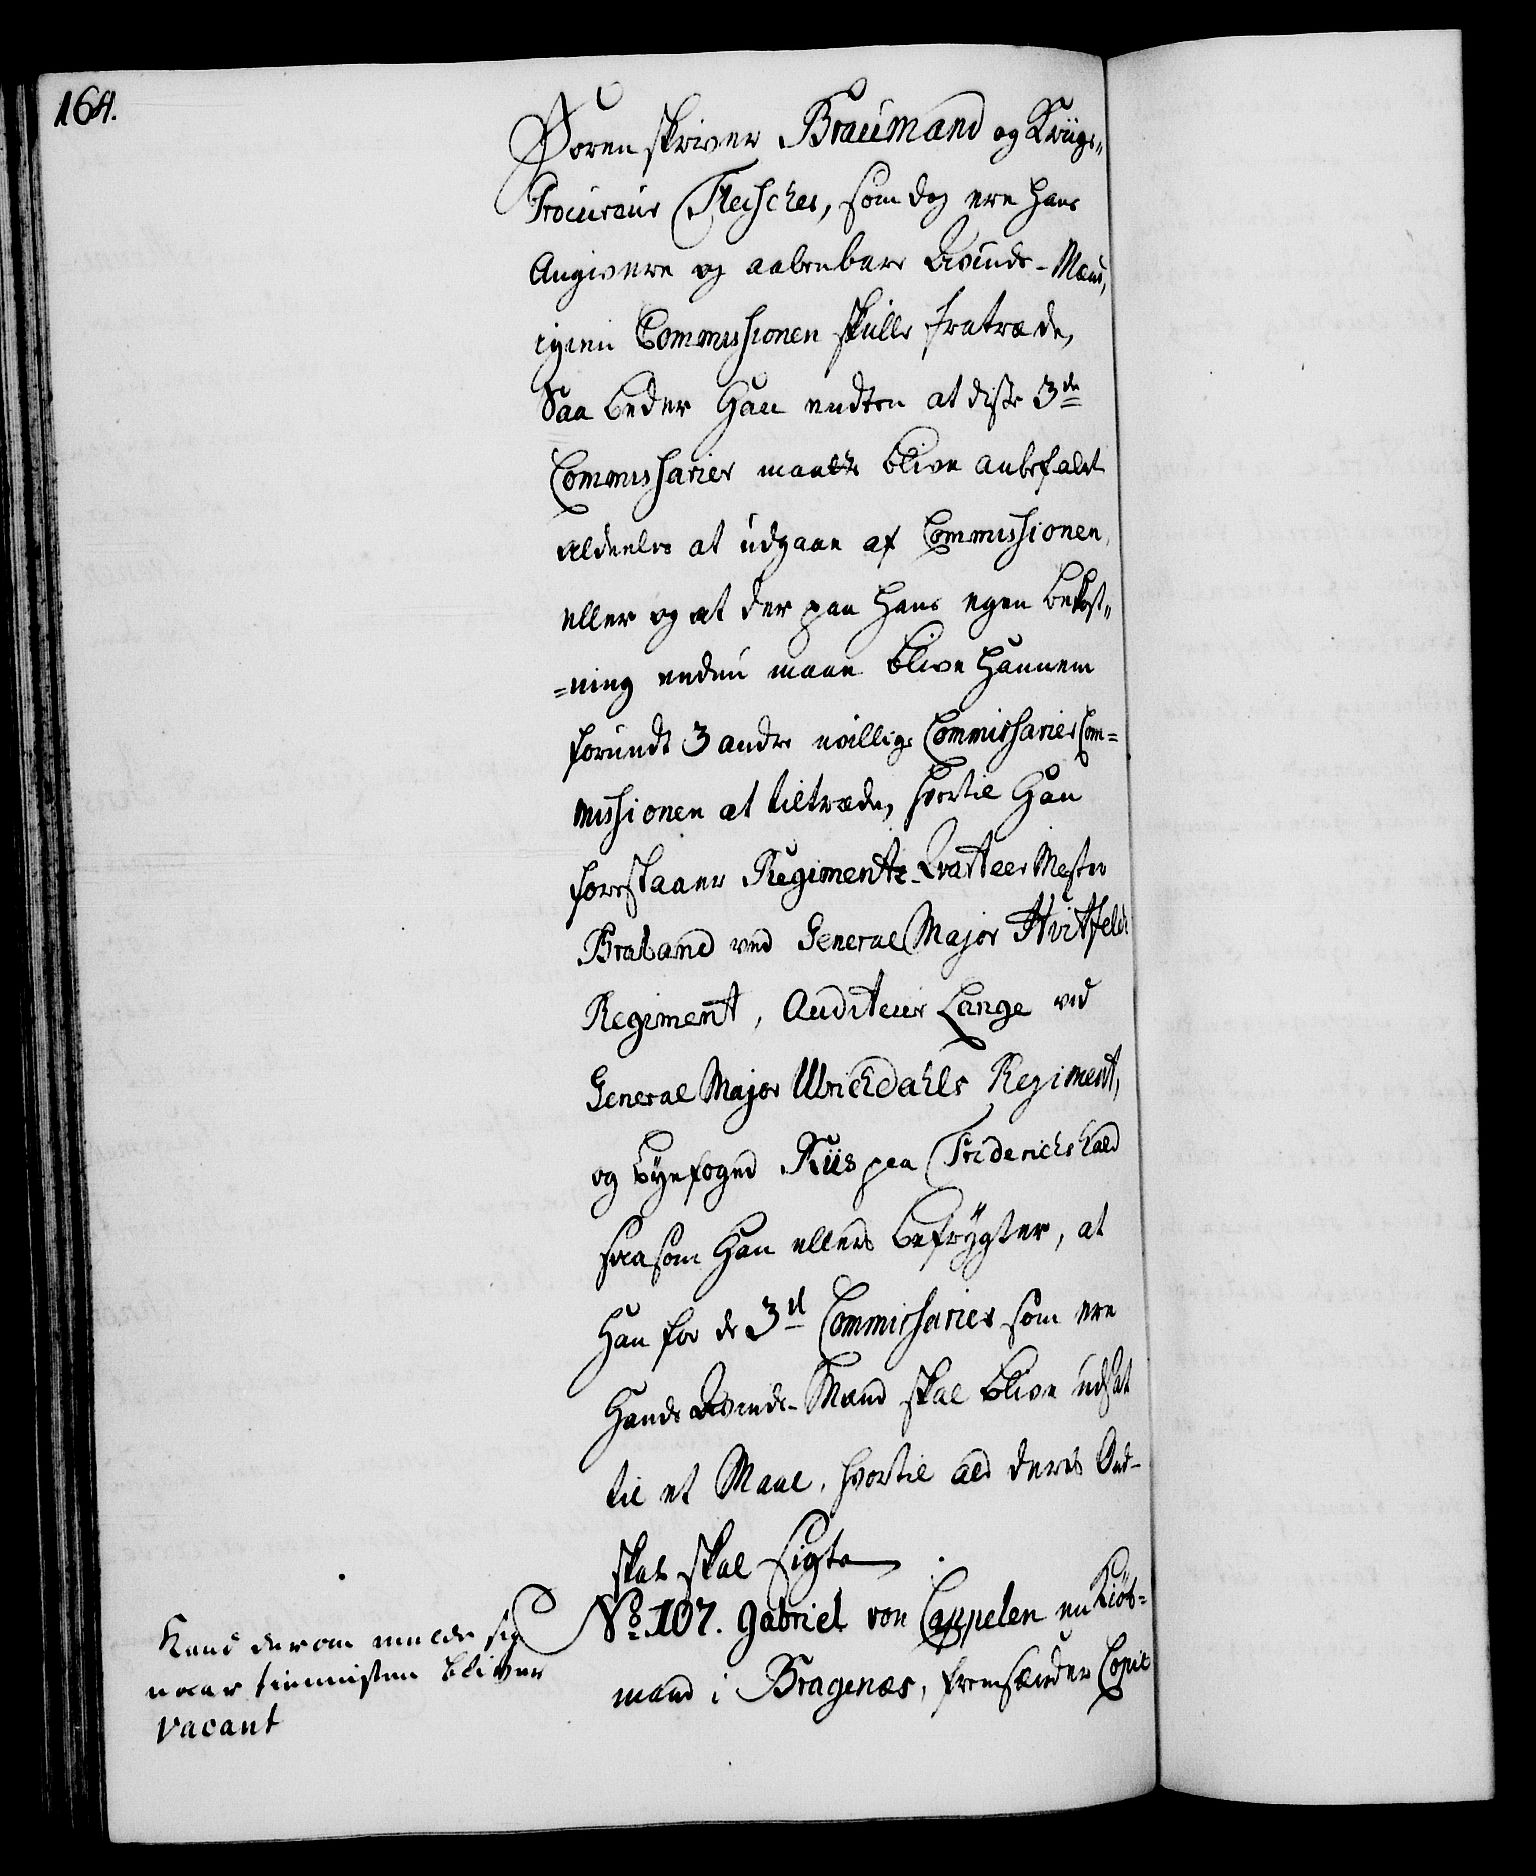 164.
Soren skriver Braumand og Kriigs-
Procureur Fleischer, som dog ere hans
Angivere og aabenbare Avinds-Mænd,
igien Commissionen skulle fratræde,
Saa beder Han endten at disse 3de
Commissarier maatte blive anbefalet
aldeeles at udgaae af Commissionen,
eller og at der paa hans egen bekost-
=ning endnu maae blive hannem
forundt 3 andre uvillige Commissarier Com-
missionen at tiltræde, hvortil Han
foreslaaer Regiments-Qvarteer Mester
Braband ved General Major Hvitfelds
Regiment, Auditeur Lange ved
General Major Ulrichdahls Regiment,
og Byefoged Riis paa Friderichshald
saasom Han ellers befrygter, at
Han for de 3de Commissarier som ere
Hands Avinds-Mænd skal blive udsat
til et Maal, hvortil ald deres Ond-
skab skal sigte.
No. 107. Gabriel von Cappelen en Kiöb-
mand i Bragenæs, fremsænder Copie
Kand derom melde sig
naar tienesten bliver
vacant